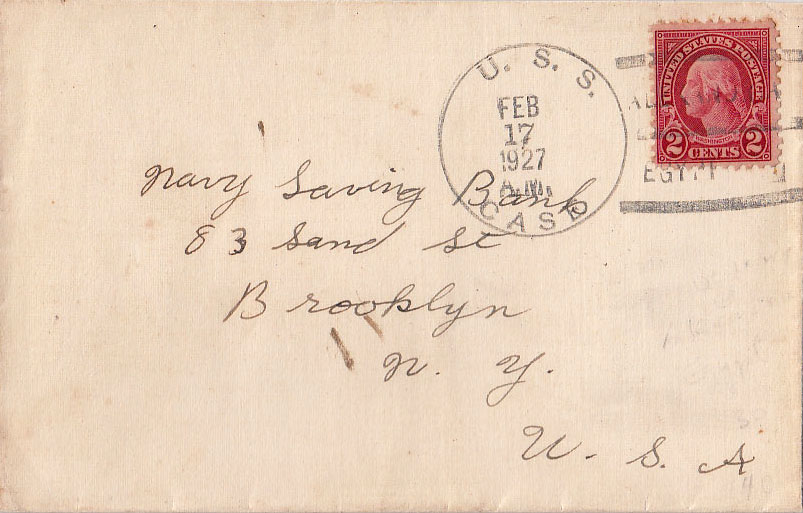 U. S. S.
FEB
17
1927
A.M.
CASE
EGYPT
UNITED STATES POSTAGE
WASHINGTON
2 CENTS 2
Navy Saving Bank
83 Sand St
Brooklyn
N. Y.
U. S. A